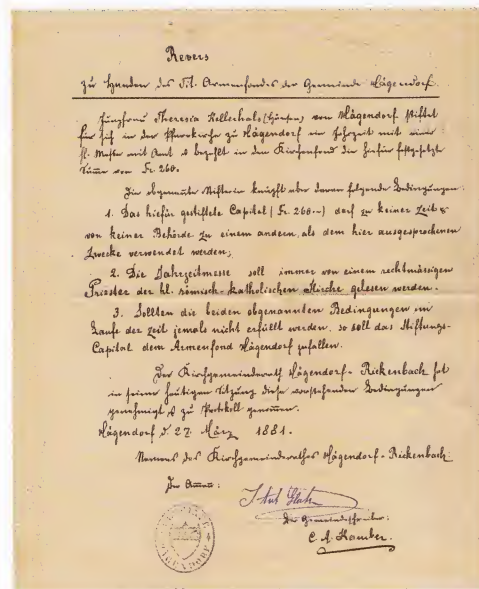 Revers
zu Handen des Tit. Armenfondes der Gemeinde Hägendorf.
Jungfrau Theresia Kellerhals von Hägendorf stiftet
für sich in der Pfarrkirche zu Hägendorf ein Jahrzeit mit einer
hl. Messe mit Amt & bezahlt in den Kirchenfond die hiefür festgesetzte
Summe von Fr. 260.
Die obgenannte Stifterin knüpft aber daran folgende Bedingungen:
1. Das hiefür gestiftete Capital (Fr. 260.-) darf zu keiner Zeit &
von keiner Behörde zu einem andern, als dem hier ausgesprochenen
Zwecke verwendet werden;
2. Die Jahrzeitmesse soll immer von einem rechtmässigen
Priester der hl. römisch-katholischen Kirche gelesen werden.
3. Sollten die beiden obgenannten Bedingungen im
Laufe der Zeit jemals nicht erfüllt werden, so soll das Stiftungs-
Capital dem Armenfond Hägendorf zufallen.
Der Kirchgemeinderath Hägendorf-Rickenbach hat
in seiner heutigen Sitzung diese vorstehenden Bedingungen
genehmigt & zu Protokoll genommen.
Hägendorf d. 27. März 1881.
Namens des Kirchgemeinderathes Hägendorf-Rickenbach:
Der Ammann:
Der Gemeindschreiber:
C. A. Kamber.
HÄGENDORF